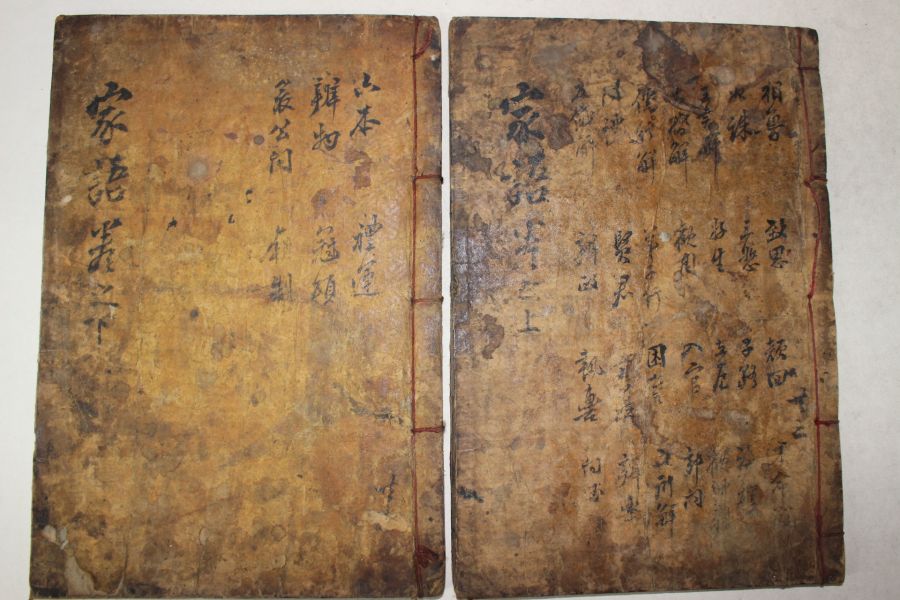 相魯 致思 顔回
三恕 子路
王言解 好生 在厄
大昏解 觀周 入官 郊問
儒行解 弟子行 困誓 五刑解
賢君 辨樂
五儀解 辨政 執轡 問玉
家語卷之上
共二
六本 禮運
辨物 冠頌
哀公問 廟制
家語卷之下